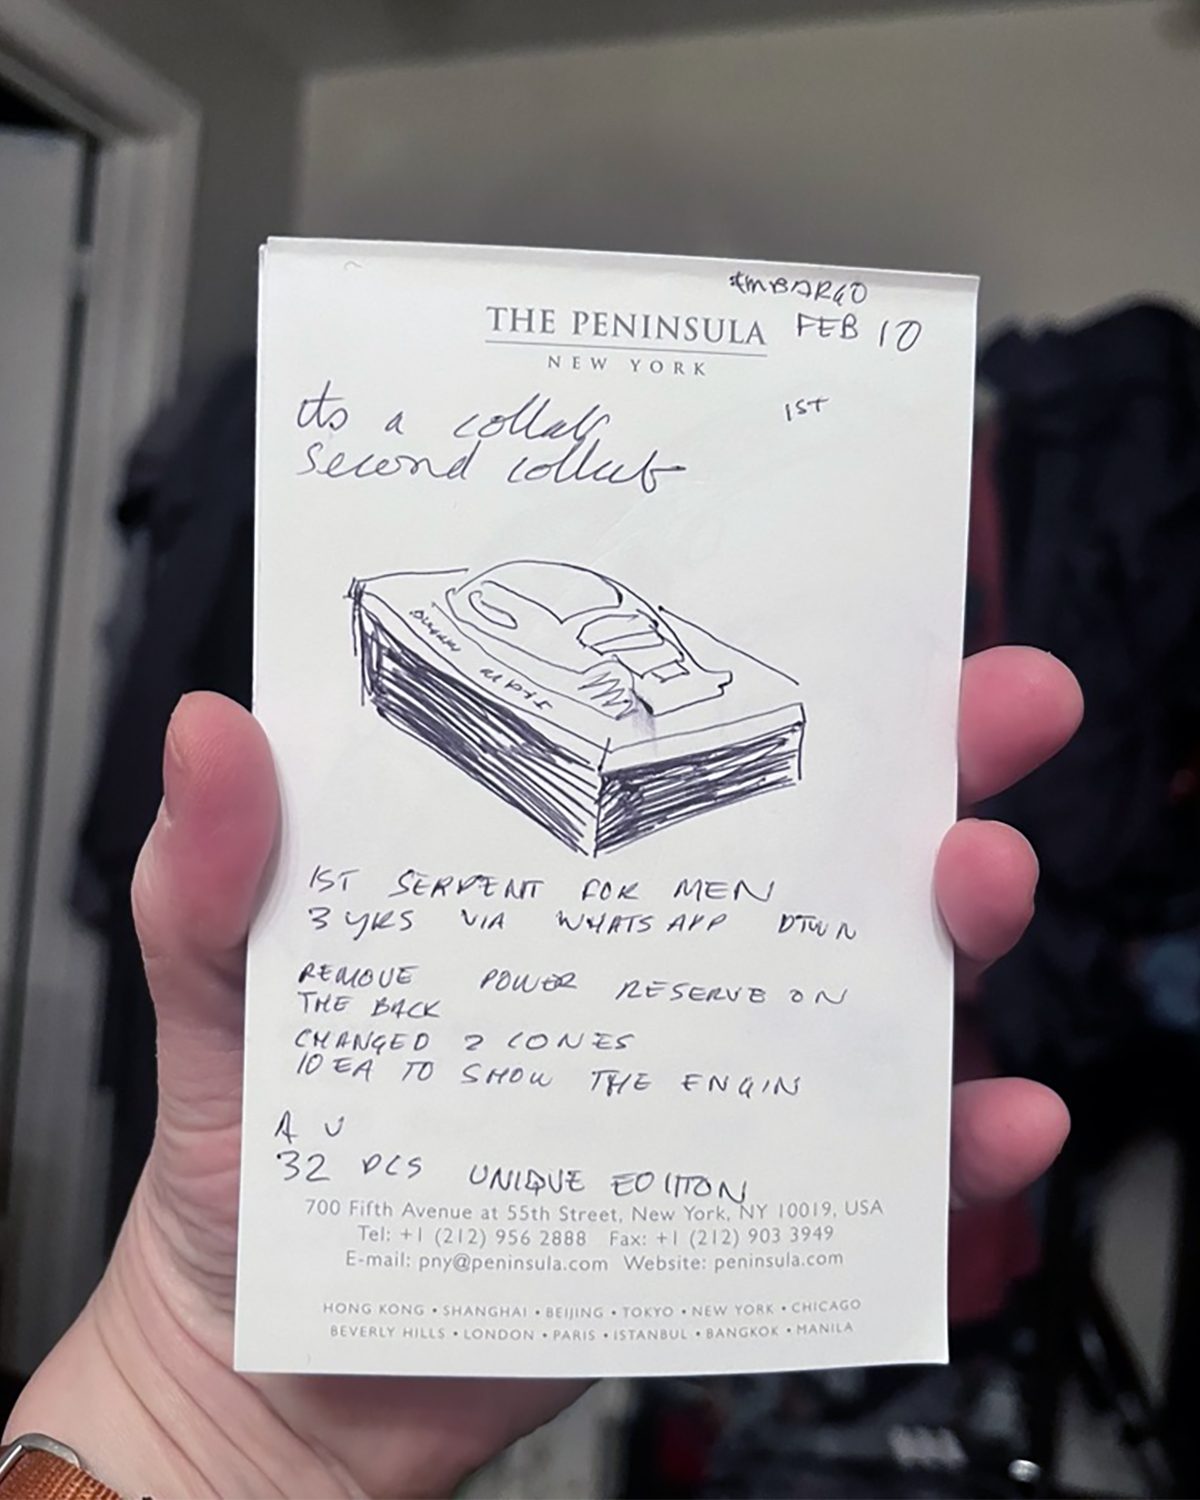 EMBARGO
THE PENINSULA
NEW YORK
FEB 10
its a collab
1ST
second collab
1ST SERPENT FOR MEN
3 YRS VIA WHATSAPP DTWN
REMOVE POWER RESERVE ON
THE BACK
CHANGED 2 CONES
IDEA TO SHOW THE ENGIN
A U
32 PCS UNIQUE EDITION
700 Fifth Avenue at 55th Street, New York, NY 10019, USA
Tel: +1 (212) 956 2888 Fax: +1 (212) 903 3949
E-mail: pny@peninsula.com Website: peninsula.com
HONG KONG • SHANGHAI • BEIJING • TOKYO • NEW YORK • CHICAGO
BEVERLY HILLS • LONDON • PARIS • ISTANBUL • BANGKOK • MANILA